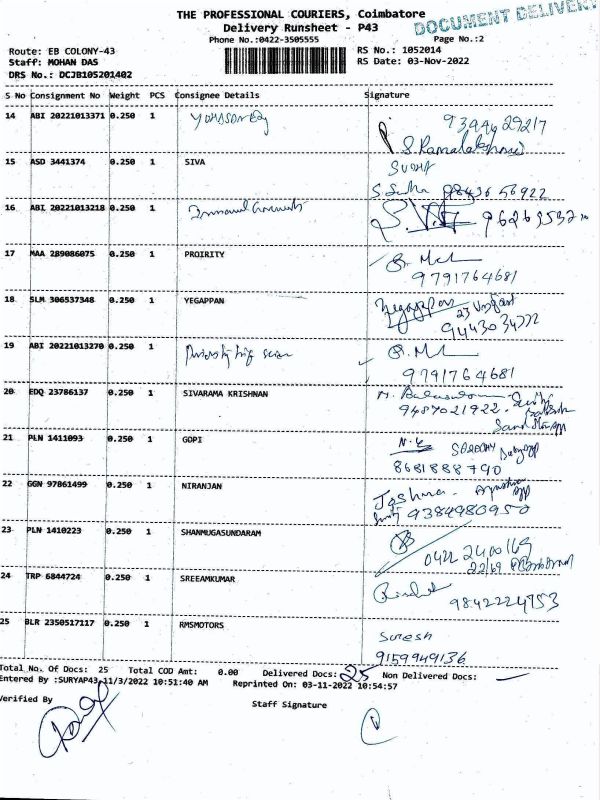 THE PROFESSIONAL COURIERS, Coimbatore
DOCUMENT DELIVERY
Delivery Runsheet - P43
Phone No.:0422-3505555
Page No.:2
Route: EB COLONY-43
RS No.: 1052014
Staff: MOHAN DAS
RS Date: 03-Nov-2022
DRS No.: DCJB105201402
S No Consignment No Weight PCS Consignee Details Signature
14 ABI 20221013371 0.250 1
S. Ramalakshmi
15 ASD 3441374 0.250 1 SIVA
SUDHA
S. Sudha 98436 56922
16 ABI 20221013218 0.250 1
17 MAA 289086075 0.250 1 PROIRITY
9791764681
18 SLM 306537348 0.250 1 YEGAPPAN
Yegappan
19 ABI 20221013270 0.250 1
9791764681
20 EDQ 23786137 0.250 1 SIVARAMA KRISHNAN
9487021922
21 PLN 1411093 0.250 1 GOPI
8681888790
22 GGN 97861499 0.250 1 NIRANJAN
Joshua
9384980950
23 PLN 1410223 0.250 1 SHANMUGASUNDARAM
0422 2400169
24 TRP 6844724 0.250 1 SREEAMKUMAR
9842224753
25 BLR 2350517117 0.250 1 RMSMOTORS
Suresh
9159949136
Total No. Of Docs: 25 Total COD Amt: 0.00 Delivered Docs: 25 Non Delivered Docs: -
Entered By :SURYAP43 11/3/2022 10:51:40 AM Reprinted On: 03-11-2022 10:54:57
Verified By
Staff Signature